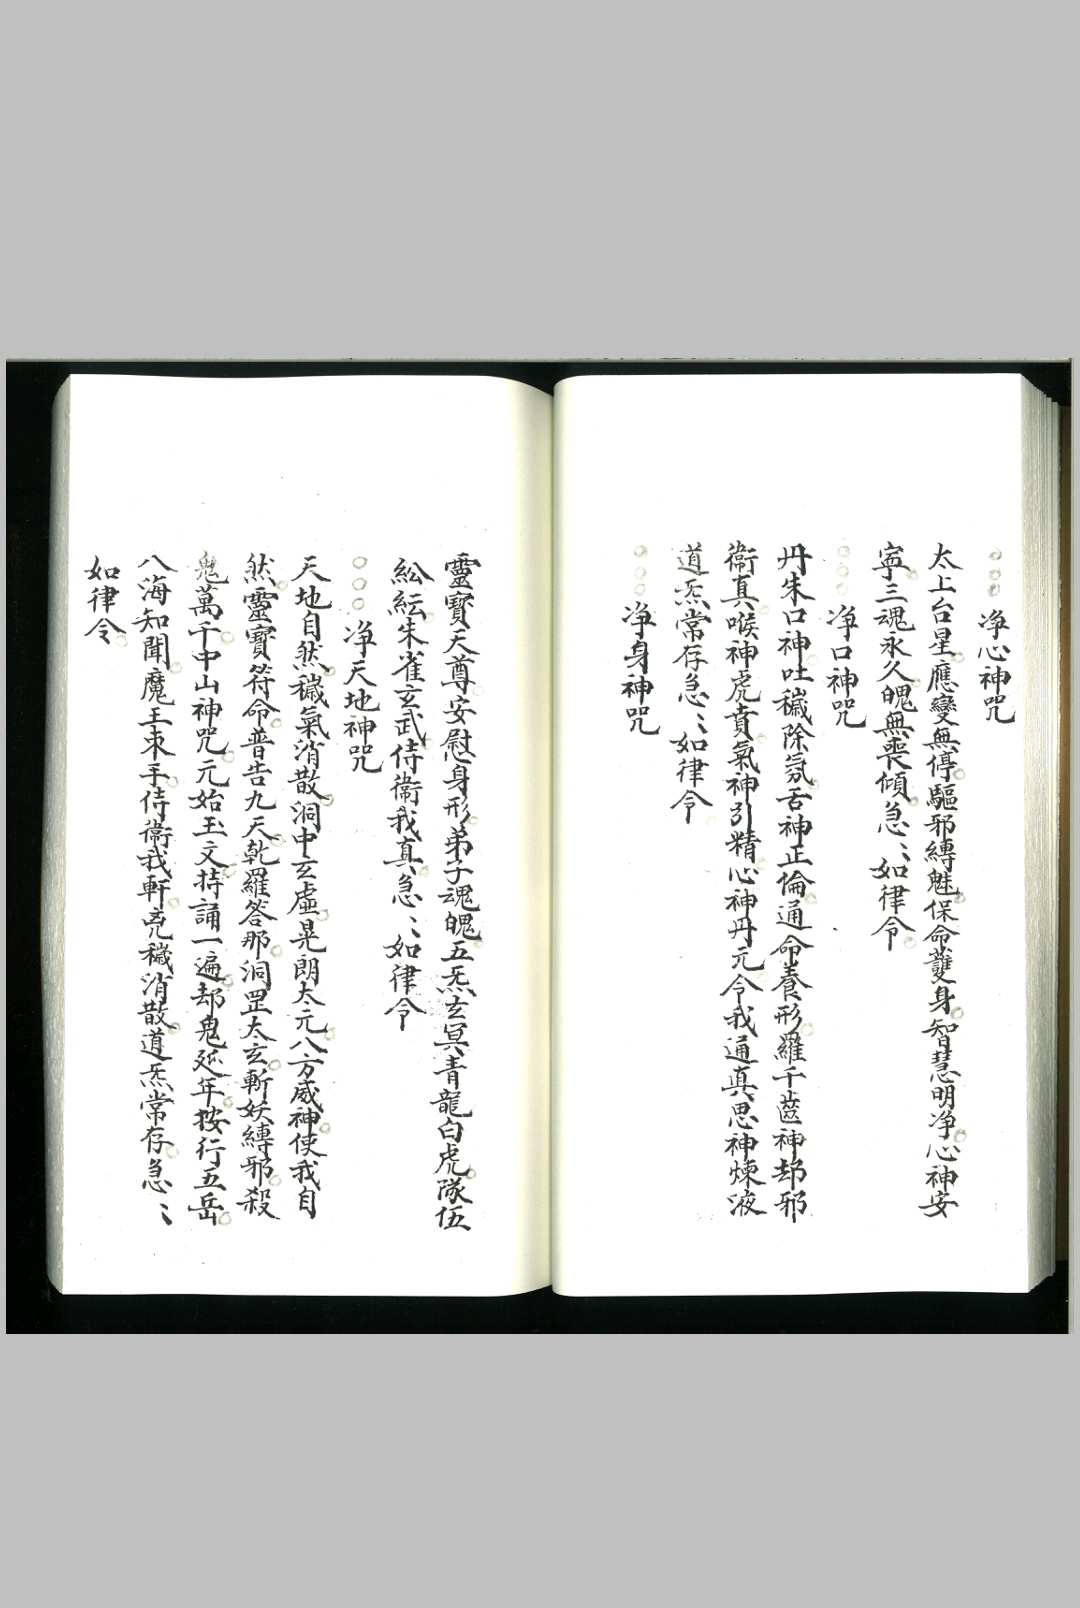 ○○○净心神咒
太上台星應變無停驅邪縛魅保命護身智慧明净心神安
寧三魂永久魄無喪傾急〻如律令
○○○净口神咒
丹朱口神吐穢除氛舌神正倫通命養形羅千齒神却邪
衛真喉神虎賁氣神引精心神丹元令我通真思神煉液
道炁常存急〻如律令
○○○净身神咒
靈寳天尊安慰身形弟子魂魄五炁玄冥青龍白虎隊伍
紛紜朱雀玄武侍衛我真急〻如律令
○○○净天地神咒
天地自然穢氣消散洞中玄虛晃朗太元八方威神使我自
然靈寳符命普告九天乾羅答那洞罡太玄斬妖縛邪殺
鬼萬千中山神咒元始玉文持誦一遍却鬼延年按行五岳
八海知聞魔王束手侍衛我軒兇穢消散道炁常存急〻
如律令